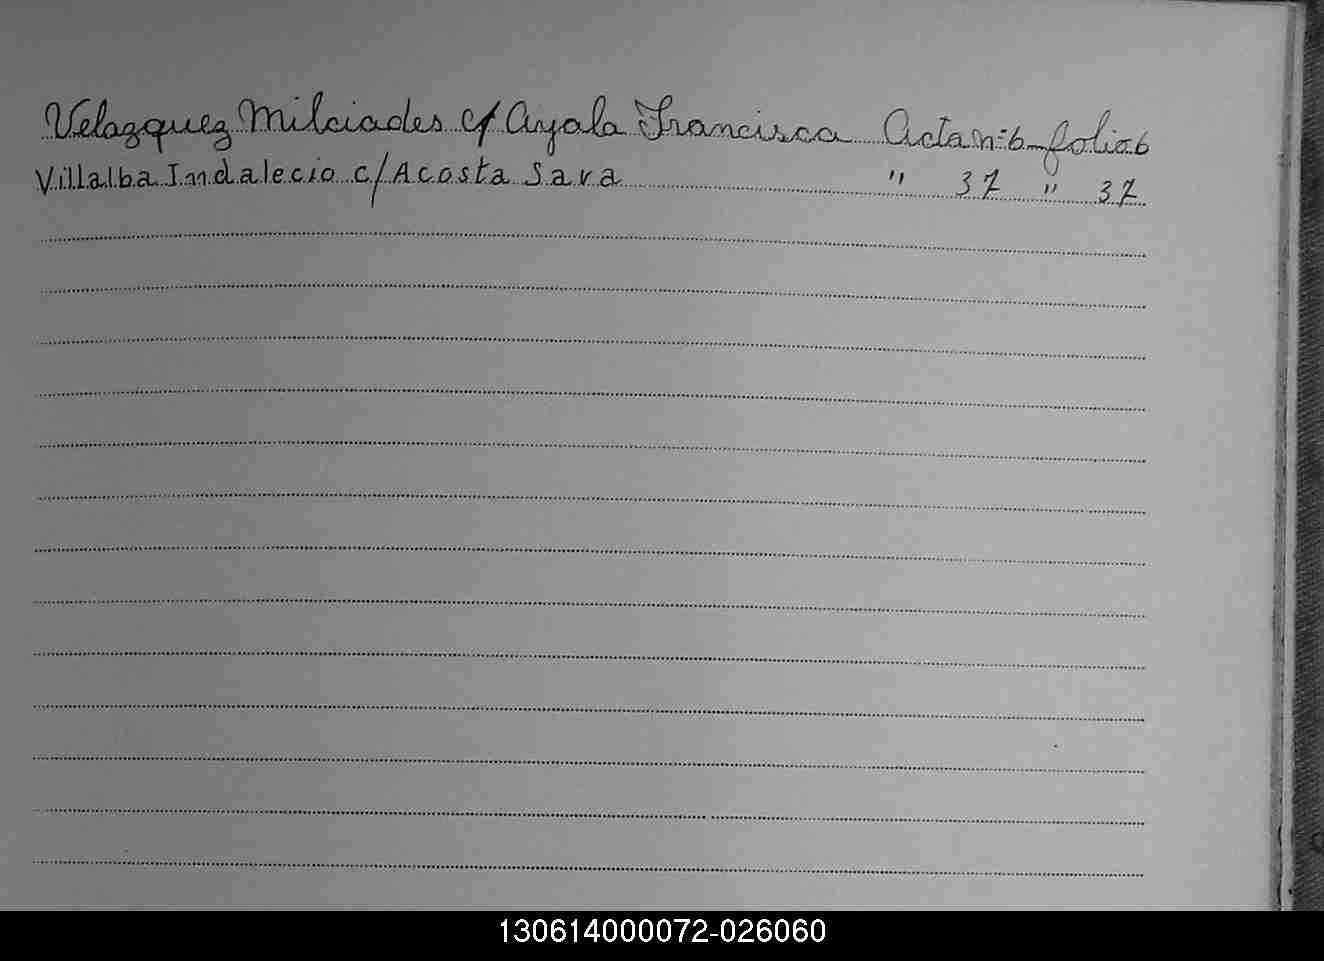 Velazquez Milciades c/ Ayala Francisca Acta Nº 6 folio 6
Villalba Indalecio c/ Acosta Sara " 37 " 37
130614000072-026060